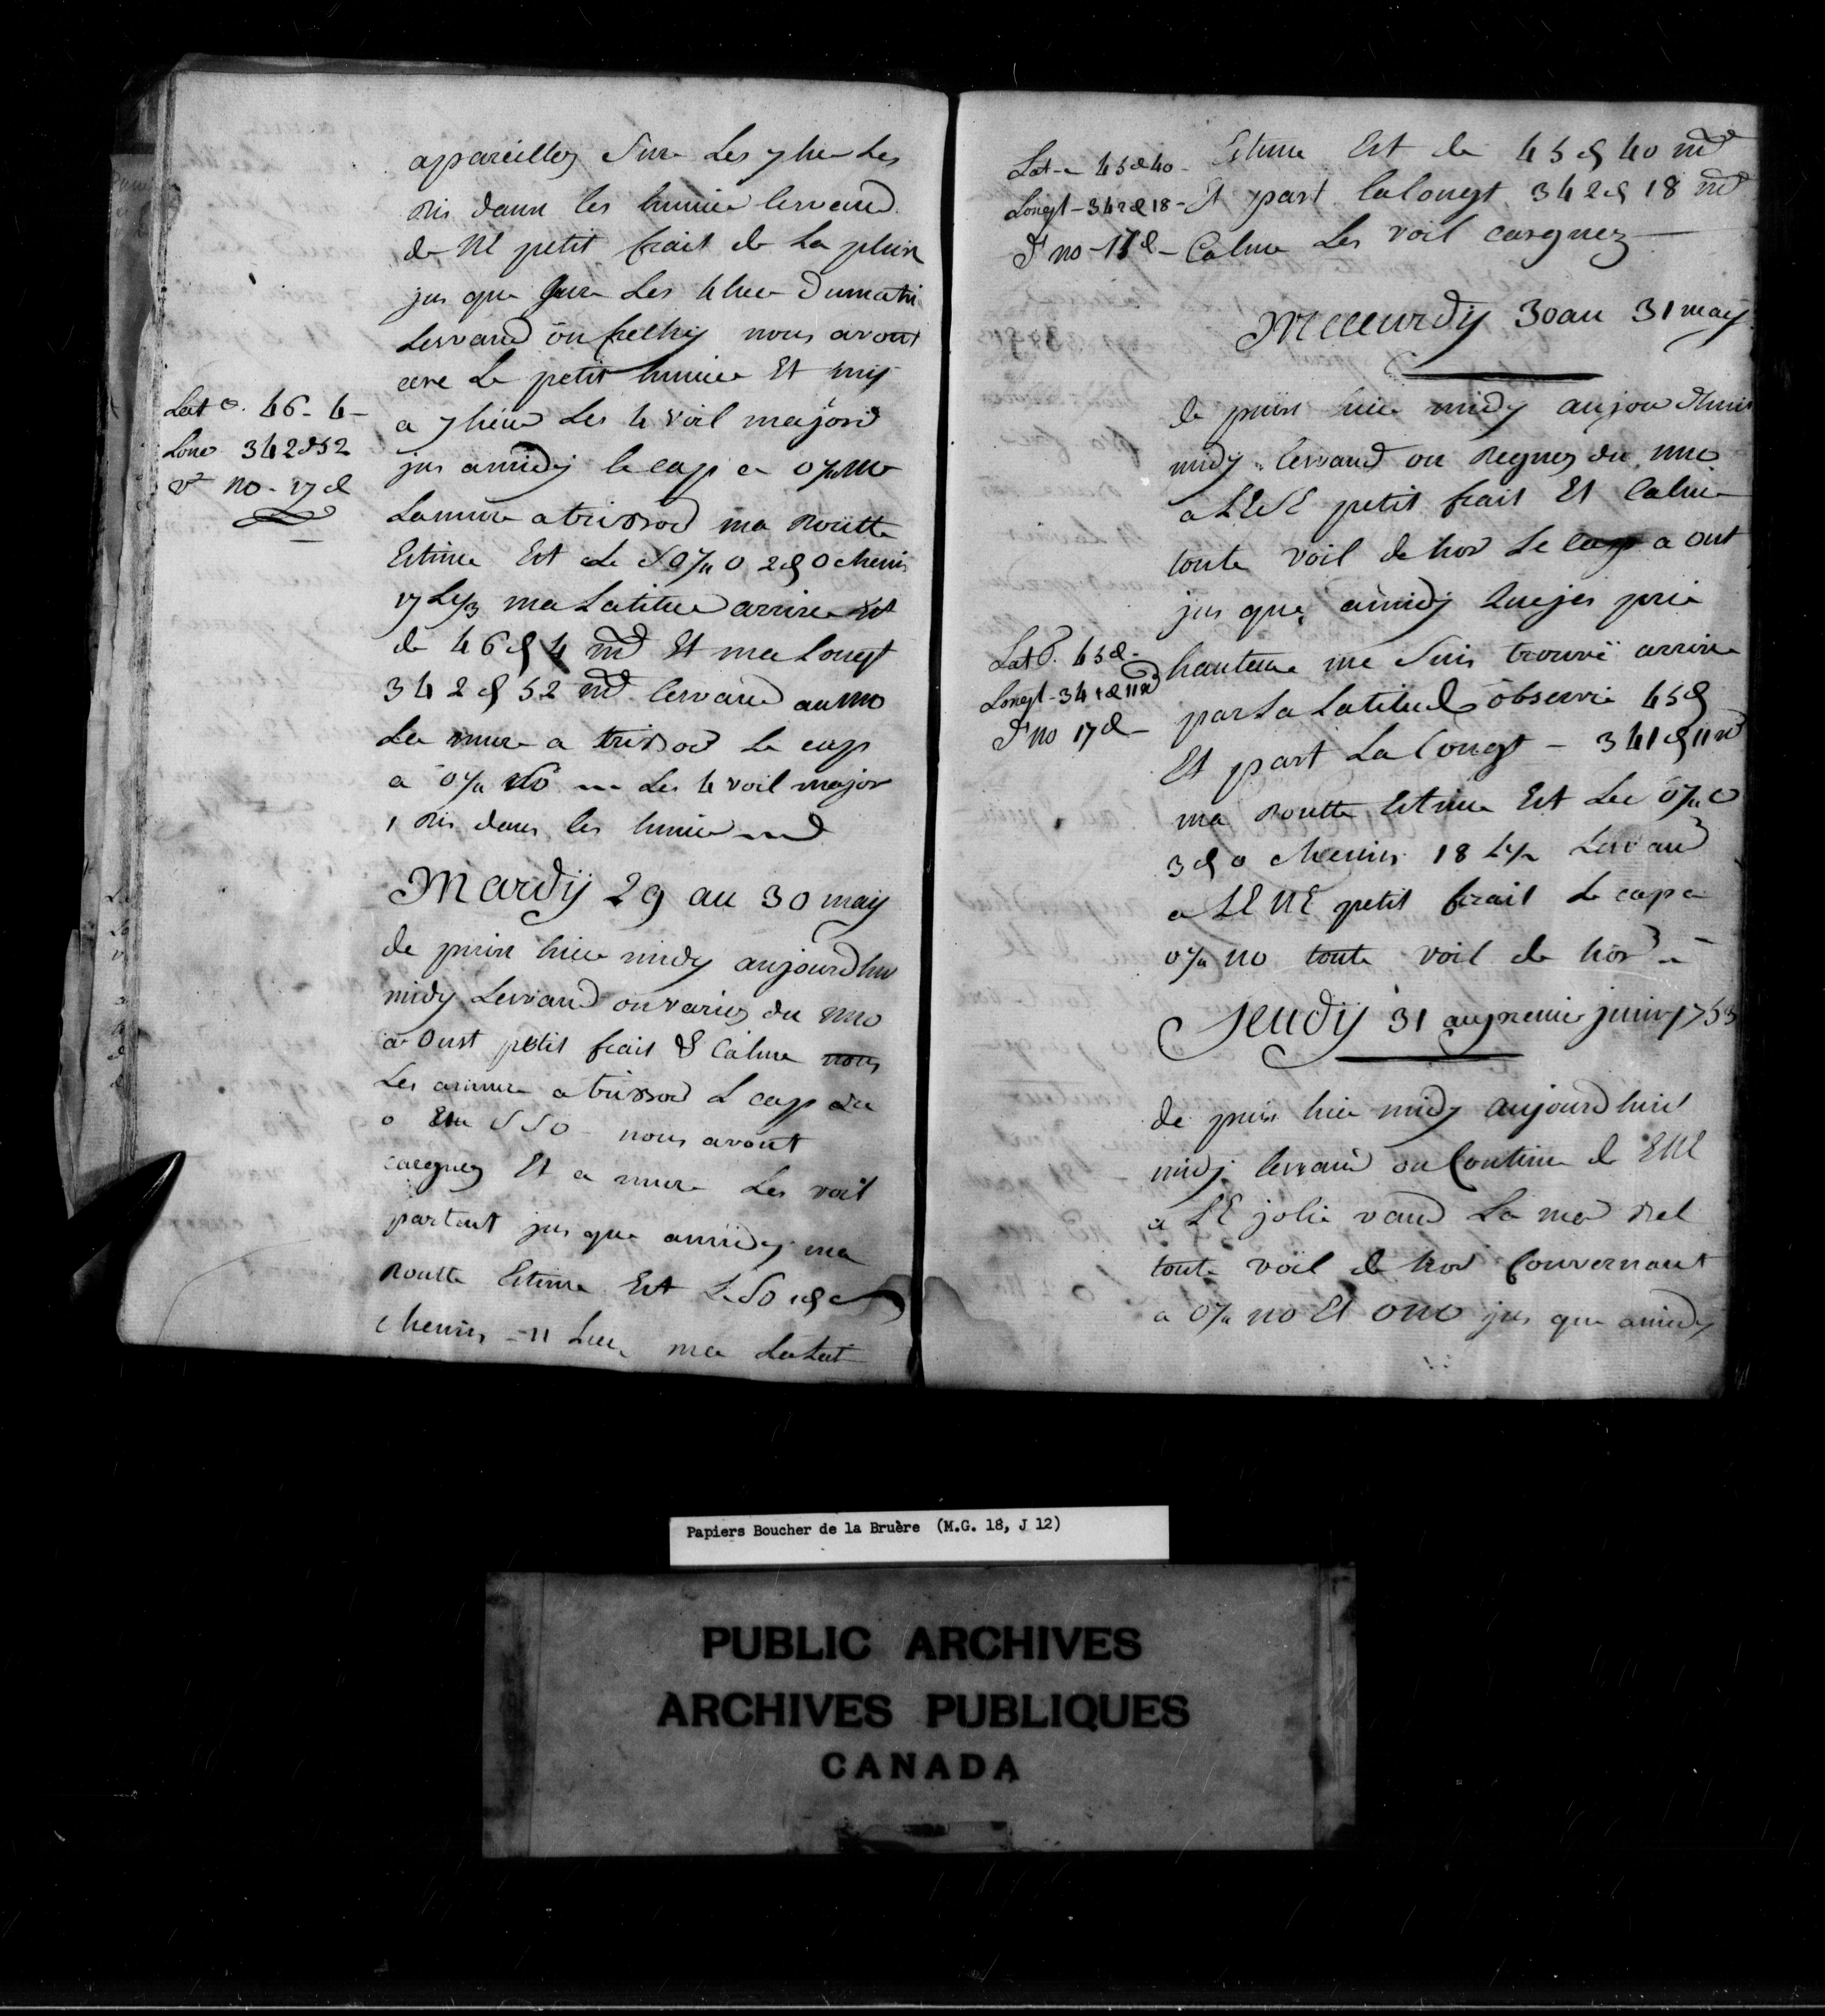 appareillez Sur Les 7 heu Les
Ris dann les hunie levand
de NE petit frait de La pluin
jus que Sur Les 4 heu Dumatin
Levand on frechy nous avont
le petit hunie Et mis
Lat e. 46 - 4 -
Lon 342 d 52
Vt no - 17 d
a 7 heur Les 4 voil major
jus amidy le cap a o 1/4 no
Lamure atribord ma Routte
Estime Est de o 2 d o chemin
17 L 1/3 ma Latitue arrivee Est
de 46 d 4 md Et ma Longt
342 d 52 md levand au nno
La mure a tribord Le cap
a o 1/4 so Les 4 voil major
1 Ris dans les hunie
Mardy 29 au 30 may
de puin hier midy aujourdhui
midy Levand on variez du nno
a Oust petit frait & Calme nous
Les amure a tribord L cap du
o SSO - nous avont
cargnez Et a mure Les voil
partout jus que amidy ma
Routte Estime Est Le So
chemin - 11 Lieu ma La Lat
Lat - 45 d 40 -
Longt - 342 d 18 -
Vt no - 17 d -
Estime Est de 45 d 40 md
Et part lalongt 342 d 18 md
Calme Les voil cargnez
Meceurdy 30 au 31 may
de puin hier midy aujourdhuit
midy levand on Regnez du nno
a LESE petit frait Et Calme
toute voil de hor Le cap a Out
jus que amidy Que jes prie
Lat O. 45 d -
Longt - 341 d 11 md
Vt no 17 d -
hauteur me Suis trouvé arrivee
par La Latitude observée 45 d
Et part La Longt - 341 d 11 md
ma Routte Estime Est Le o 1/4 o
3 d o chemin 18 L 1/2 Levand
a LENE petit frait Le cap a
o 1/4 no toute voil de hor
Jeudy 31 au premier juin 1753
de puis hier midy aujourdhuit
midj levand on Continue de ENE
a LE jolie vand La mer bel
toute voil de hor Gouvernant
a o 1/4 no Et ono jus que amidy
Papiers Boucher de la Bruère (M.G. 18, J 12)
PUBLIC ARCHIVES
ARCHIVES PUBLIQUES
CANADA